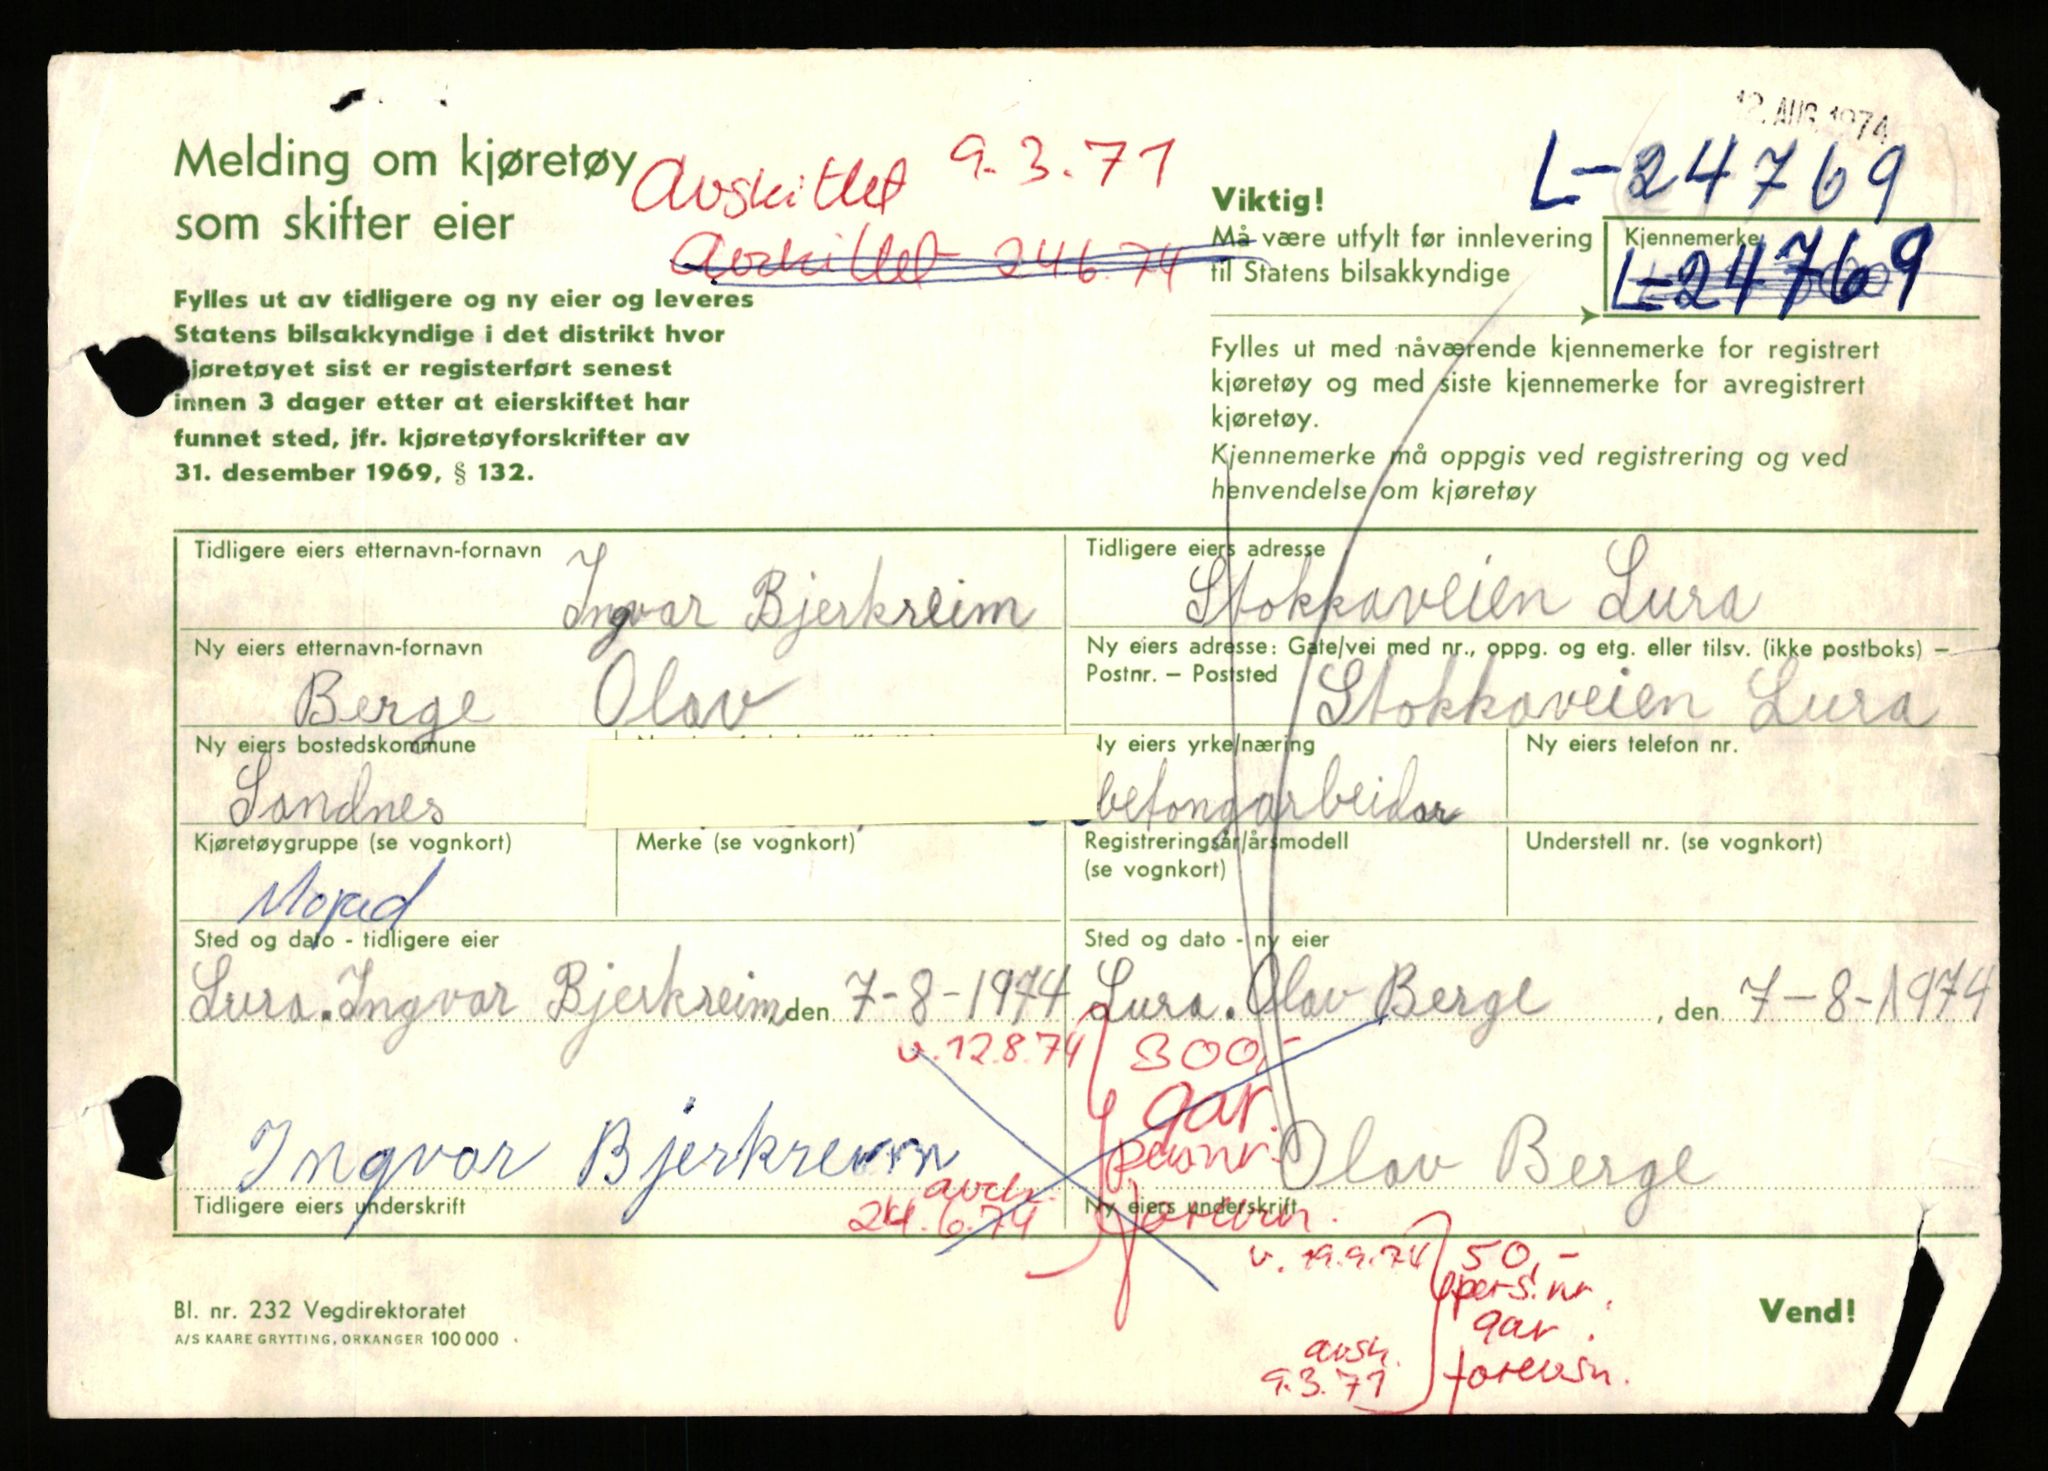 12. AUG. 1974
Melding om kjøretøy
som skifter eier
Avskiltet 9.3.71
Avskiltet 24 6. 74
Fylles ut av tidligere og ny eier og leveres
Statens bilsakkyndige i det distrikt hvor
kjøretøyet sist er registerført senest
innen 3 dager etter at eierskiftet har
funnet sted, jfr. kjøretøyforskrifter av
31. desember 1969, § 132.
L-24769
Viktig!
Må være utfylt før innlevering
til Statens bilsakkyndige
Kjennemerke
L-24769
Fylles ut med nåværende kjennemerke for registrert
kjøretøy og med siste kjennemerke for avregistrert
kjøretøy.
Kjennemerke må oppgis ved registrering og ved
henvendelse om kjøretøy
Tidligere eiers etternavn-fornavn
Ingvar Bjerkreim
Tidligere eiers adresse
Stokkaveien Lura
Ny eiers etternavn-fornavn
Berge Olav
Ny eiers adresse: Gate/vei med nr., oppg. og etg. eller tilsv. (ikke postboks) –
Postnr. – Poststed
Stokkaveien Lura
Ny eiers bostedskommune
Sandnes
Ny eiers yrke/næring
betongarbeidar
Ny eiers telefon nr.
Kjøretøygruppe (se vognkort)
Moped
Merke (se vognkort)
Registreringsår/årsmodell
(se vognkort)
Understell nr. (se vognkort)
Sted og dato - tidligere eier
Lura. Ingvar Bjerkreim, den 7-8-1974
Sted og dato - ny eier
Lura. Olav Berge, den 7-8-1974
v. 12.8.74
300,-
gar.
persnr.
forevsn.
Ingvar Bjerkreim
Tidligere eiers underskrift
avsk.
24.6.74
Olav Berge
Ny eiers underskrift
v. 19.9.74
50,-
pers.nr.
gar.
forevsn.
avsk.
9.3.71
Bl. nr. 232 Vegdirektoratet
A/S KAARE GRYTTING, ORKANGER 100 000
Vend!